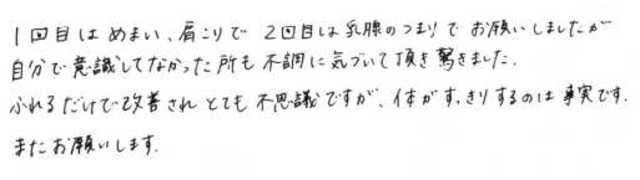 1回目は めまい、肩こりで 2回目は乳腺のつまりで お願いしましたが
自分で意識してなかった所も不調に気づいて頂き驚きました.
ふれるだけで改善され とても不思議ですが、体がすっきりするのは事実です.
またお願いします.